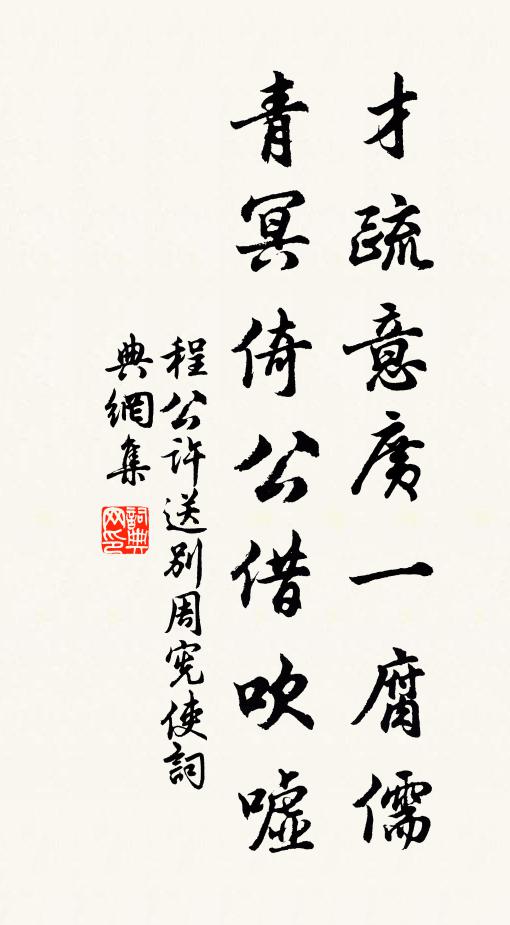 才疏意廣一腐儒
青冥倚公借吹噓
程公許送別周宪使詞
典網集
詞典网印